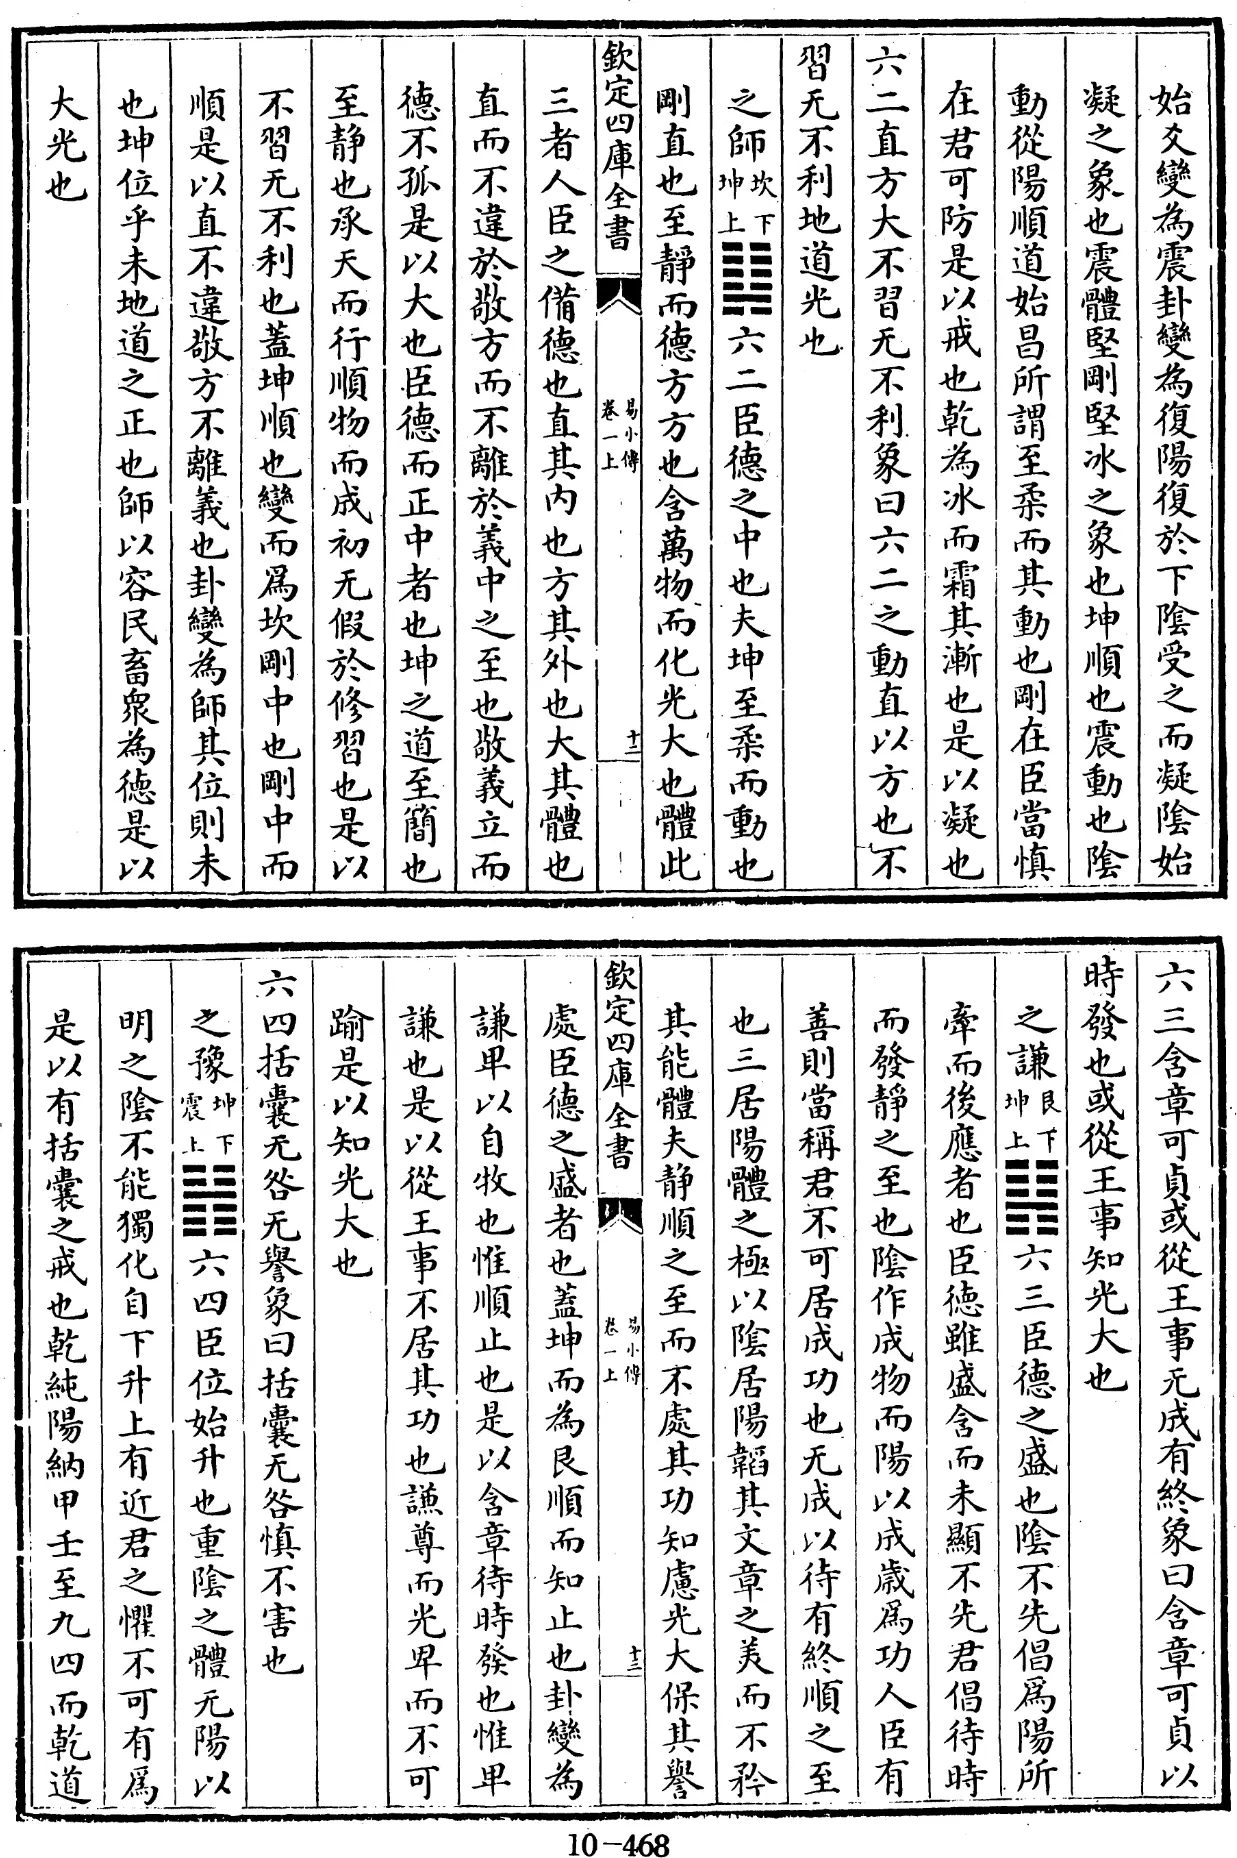 始爻變為震卦變為復陽復於下陰受之而凝陰始
凝之象也震體堅剛堅冰之象也坤順也震動也陰
動從陽順道始昌所謂至柔而其動也剛在臣當慎
在君可防是以戒也乾為冰而霜其漸也是以凝也
六二直方大不習无不利象曰六二之動直以方也不
習无不利地道光也
之師坎下坤上䷆六二臣德之中也夫坤至柔而動也
剛直也至靜而德方方也含萬物而化光大也體此
欽定四庫全書
易小傳
卷一上
十二
三者人臣之備德也直其内也方其外也大其體也
直而不違於敬方而不離於義中之至也敬義立而
德不孤是以大也臣德而正中者也坤之道至簡也
至靜也承天而行順物而成初无假於修習也是以
不習无不利也蓋坤順也變而爲坎剛中也剛中而
順是以直不違敬方不離義也卦變為師其位則未
也坤位乎未地道之正也師以容民畜衆為德是以
大光也
六三含章可貞或從王事无成有終象曰含章可貞以
時發也或從王事知光大也
之謙艮下坤上䷎六三臣德之盛也陰不先倡爲陽所
牽而後應者也臣德雖盛含而未顯不先君倡待時
而發靜之至也陰作成物而陽以成歲爲功人臣有
善則當稱君不可居成功也无成以待有終順之至
也三居陽體之極以陰居陽韜其文章之美而不矜
其能體夫靜順之至而不處其功知慮光大保其譽
欽定四庫全書
易小傳
卷一上
十三
處臣德之盛者也蓋坤而為艮順而知止也卦變為
謙卑以自牧也惟順止也是以含章待時發也惟卑
謙也是以從王事不居其功也謙尊而光卑而不可
踰是以知光大也
六四括囊无咎无譽象曰括囊无咎慎不害也
之豫坤下震上䷏六四臣位始升也重陰之體无陽以
明之陰不能獨化自下升上有近君之懼不可有爲
是以有括囊之戒也乾純陽納甲壬至九四而乾道
10-468